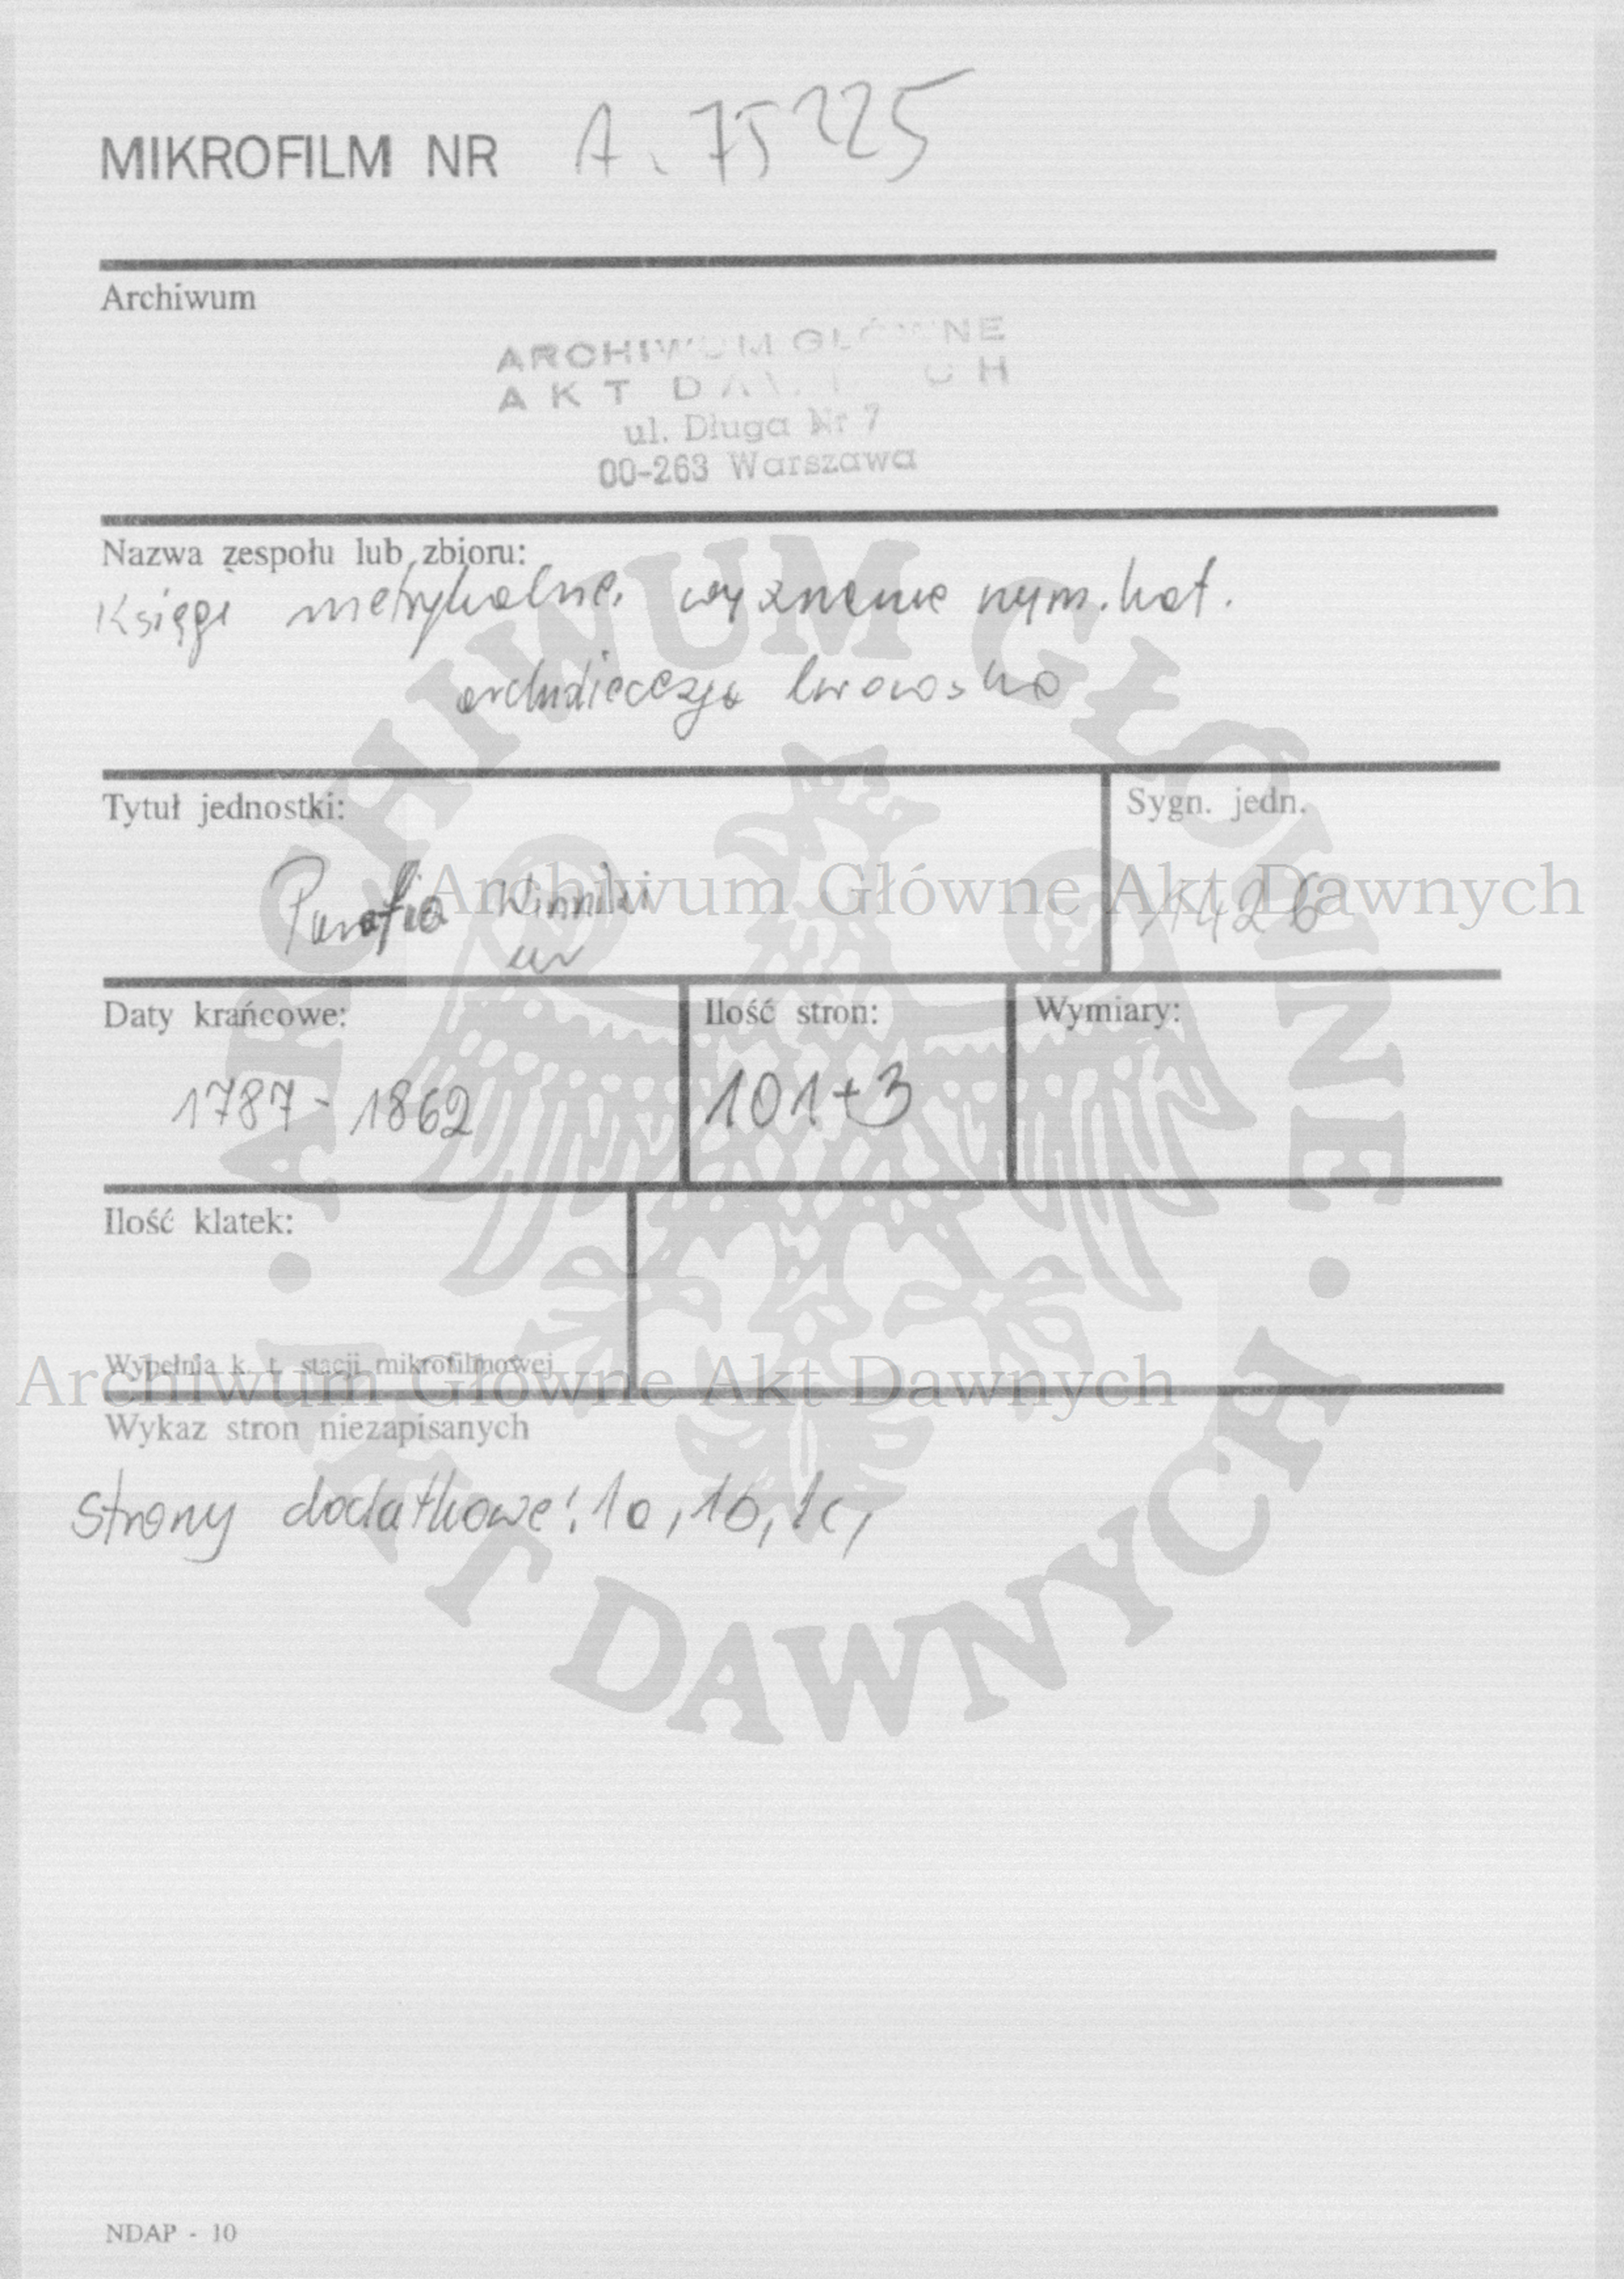 MIKROFILM NR A. 75225
Archiwum
ARCHIWUM GŁÓWNE
AKT DAWNYCH
ul. Długa Nr 7
00-263 Warszawa
Nazwa zespołu lub zbioru:
Księgi metrykalne, wyznanie rzym. kat.
archidiecezja lwowska
Tytuł jednostki:
Sygn. jedn.
Parafia Winniki
1426
Archiwum Główne Akt Dawnych
Daty krańcowe:
Ilość stron:
Wymiary:
1787 - 1862
101+3
Ilość klatek:
Wypełnia k. t. stacji mikrofilmowej
Archiwum Główne Akt Dawnych
Wykaz stron niezapisanych
Strony dodatkowe: 1a, 1b, 1c,
ARCHIWUM GŁÓWNE
AKT DAWNYCH
NDAP - 10